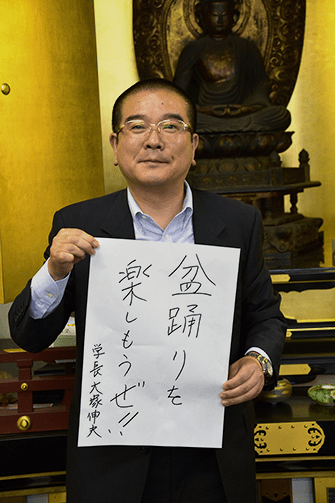 盆踊りを
楽しもうぜ!!
学長 大塚伸夫